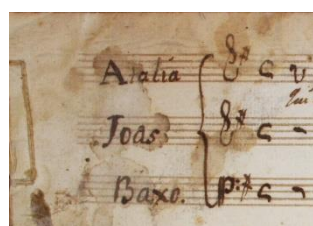 Atalia
Joas
Baxo.